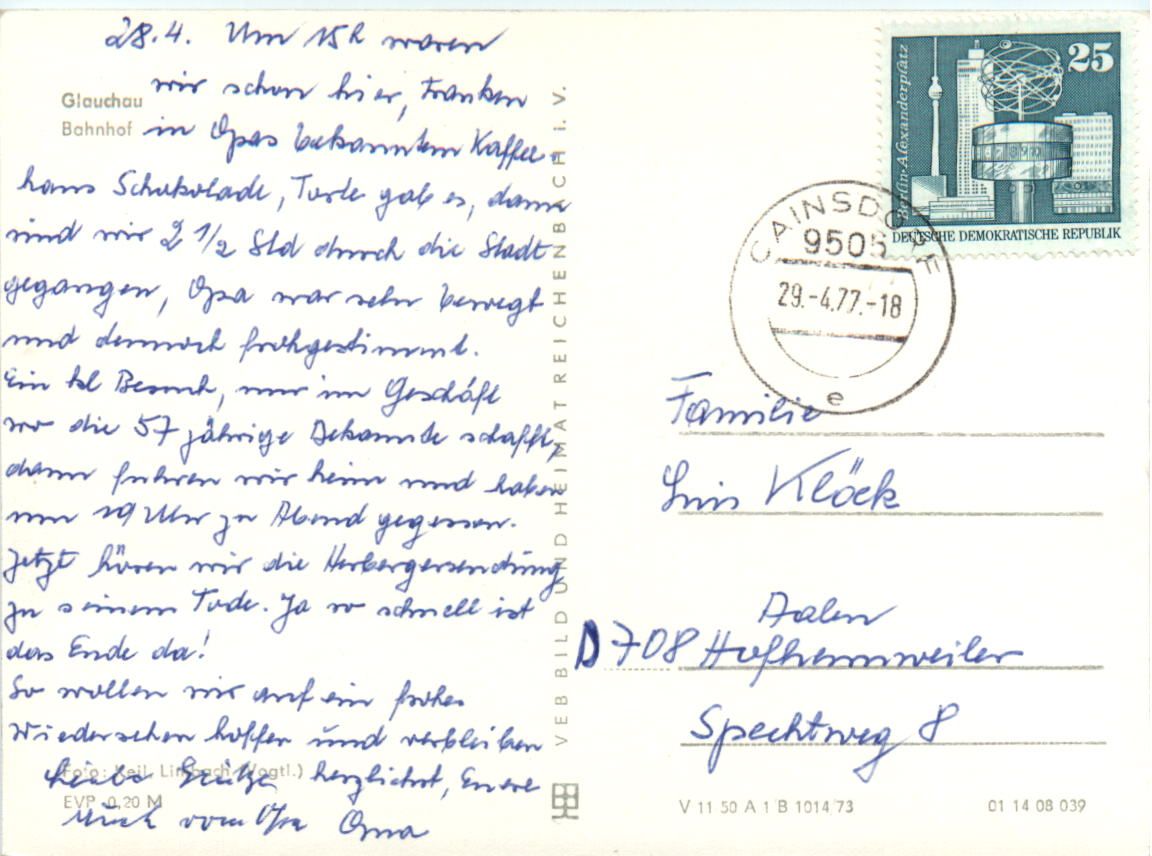 28.4. Um 15h waren
wir schon hier, tranken
in Opas bekanntem Kaffee-
haus Schokolade, Torte gab es, dann
sind wir 2 1/2 Std durch die Stadt
gegangen, Opa war sehr bewegt
und dennoch frohgestimmt.
Ein kl Besuch, nur im Geschäft
wo die 57 jährige Bekannte schafft,
dann fuhren wir heim und haben
um 19 Uhr zu Abend gegessen.
Jetzt hören wir die Herbergersendung
zu seinem Tode. Ja so schnell ist
das Ende da!
So wollen wir auf ein frohes
Wiedersehen hoffen und verbleiben
herzlichst, Eure
vom Opa Oma
Glauchau
Bahnhof
Foto: Keil, Limbach (Vogtl.)
EVP 0,20 M
VEB BILD UND HEIMAT REICHENBACH I. V.
Berlin-Alexanderplatz
25
DEUTSCHE DEMOKRATISCHE REPUBLIK
CAINSDORF
9505
29.-4.77.-18
e
Familie
Klöck
Aalen
D 708 Hofherrnweiler
Spechtweg 8
V 11 50 A 1 B 1014 73
01 14 08 039